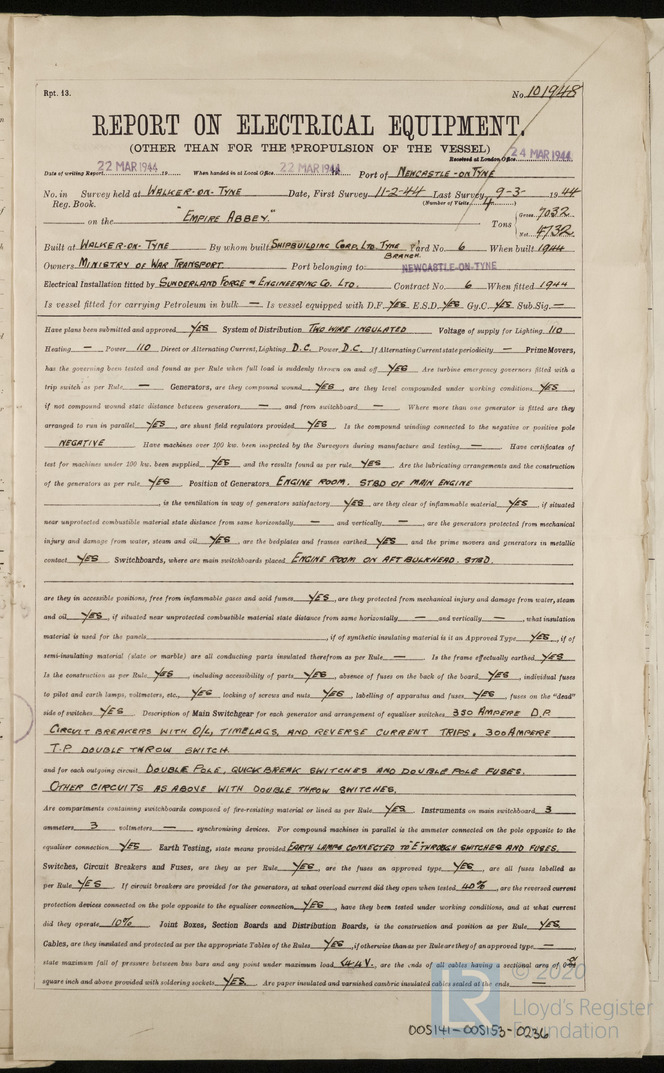 Rpt. 13.
No. 101948
REPORT ON ELECTRICAL EQUIPMENT.
(OTHER THAN FOR THE PROPULSION OF THE VESSEL)
Received at London Office 24 MAR 1944
Date of writing Report 22 MAR 1944 19 When handed in at Local Office 22 MAR 1944 Port of NEWCASTLE-ON TYNE
No. in Survey held at WALKER-ON-TYNE Date, First Survey 11-2-44 Last Survey 9-3- 1944
Reg. Book. (Number of Visits 4)
on the "EMPIRE ABBEY." Tons { Gross 7032
Net 4732
Built at WALKER-ON-TYNE By whom built SHIPBUILDING CORP. LTD. TYNE BRANCH. Yard No. 6 When built 1944
Owners MINISTRY OF WAR TRANSPORT Port belonging to NEWCASTLE-ON-TYNE
Electrical Installation fitted by SUNDERLAND FORGE & ENGINEERING CO. LTD. Contract No. 6 When fitted 1944
Is vessel fitted for carrying Petroleum in bulk — Is vessel equipped with D.F. YES E.S.D. YES Gy.C. YES Sub.Sig. —
Have plans been submitted and approved YES System of Distribution TWO WIRE INSULATED Voltage of supply for Lighting 110
Heating — Power 110 Direct or Alternating Current, Lighting D.C. Power D.C. If Alternating Current state periodicity — Prime Movers,
has the governing been tested and found as per Rule when full load is suddenly thrown on and off YES Are turbine emergency governors fitted with a
trip switch as per Rule — Generators, are they compound wound YES, are they level compounded under working conditions YES,
if not compound wound state distance between generators — and from switchboard — Where more than one generator is fitted are they
arranged to run in parallel YES, are shunt field regulators provided YES Is the compound winding connected to the negative or positive pole
NEGATIVE Have machines over 100 kw. been inspected by the Surveyors during manufacture and testing — Have certificates of
test for machines under 100 kw. been supplied YES and the results found as per rule YES Are the lubricating arrangements and the construction
of the generators as per rule YES Position of Generators ENGINE ROOM. STBD OF MAIN ENGINE
, is the ventilation in way of generators satisfactory YES are they clear of inflammable material YES, if situated
near unprotected combustible material state distance from same horizontally — and vertically —, are the generators protected from mechanical
injury and damage from water, steam and oil YES, are the bedplates and frames earthed YES and the prime movers and generators in metallic
contact YES Switchboards, where are main switchboards placed ENGINE ROOM ON AFT BULKHEAD. STBD.
are they in accessible positions, free from inflammable gases and acid fumes YES, are they protected from mechanical injury and damage from water, steam
and oil YES, if situated near unprotected combustible material state distance from same horizontally — and vertically —, what insulation
material is used for the panels , if of synthetic insulating material is it an Approved Type YES, if of
semi-insulating material (slate or marble) are all conducting parts insulated therefrom as per Rule — Is the frame effectually earthed YES
Is the construction as per Rule YES, including accessibility of parts YES, absence of fuses on the back of the board YES, individual fuses
to pilot and earth lamps, voltmeters, etc. YES locking of screws and nuts YES, labelling of apparatus and fuses YES, fuses on the "dead"
side of switches YES Description of Main Switchgear for each generator and arrangement of equaliser switches 350 AMPERE D.P.
CIRCUIT BREAKERS WITH O/L, TIMELAGS, AND REVERSE CURRENT TRIPS. 300 AMPERE
T.P DOUBLE THROW SWITCH
and for each outgoing circuit DOUBLE POLE, QUICK BREAK SWITCHES AND DOUBLE POLE FUSES.
OTHER CIRCUITS AS ABOVE WITH DOUBLE THROW SWITCHES.
Are compartments containing switchboards composed of fire-resisting material or lined as per Rule YES Instruments on main switchboard 3
ammeters 3 voltmeters — synchronising devices. For compound machines in parallel is the ammeter connected on the pole opposite to the
equaliser connection YES Earth Testing, state means provided EARTH LAMPS CONNECTED TO "E" THROUGH SWITCHES AND FUSES.
Switches, Circuit Breakers and Fuses, are they as per Rule YES, are the fuses an approved type YES, are all fuses labelled as
per Rule YES If circuit breakers are provided for the generators, at what overload current did they open when tested 40%, are the reversed current
protection devices connected on the pole opposite to the equaliser connection YES, have they been tested under working conditions, and at what current
did they operate 10% Joint Boxes, Section Boards and Distribution Boards, is the construction and position as per Rule YES.
Cables, are they insulated and protected as per the appropriate Tables of the Rules YES, if otherwise than as per Rule are they of an approved type —,
state maximum fall of pressure between bus bars and any point under maximum load <4.4V., are the ends of all cables having a sectional area of
square inch and above provided with soldering sockets YES. Are paper insulated and varnished cambric insulated cables sealed at the ends —
© 2020
LR
Lloyd's Register
Foundation
005141-005153-0236